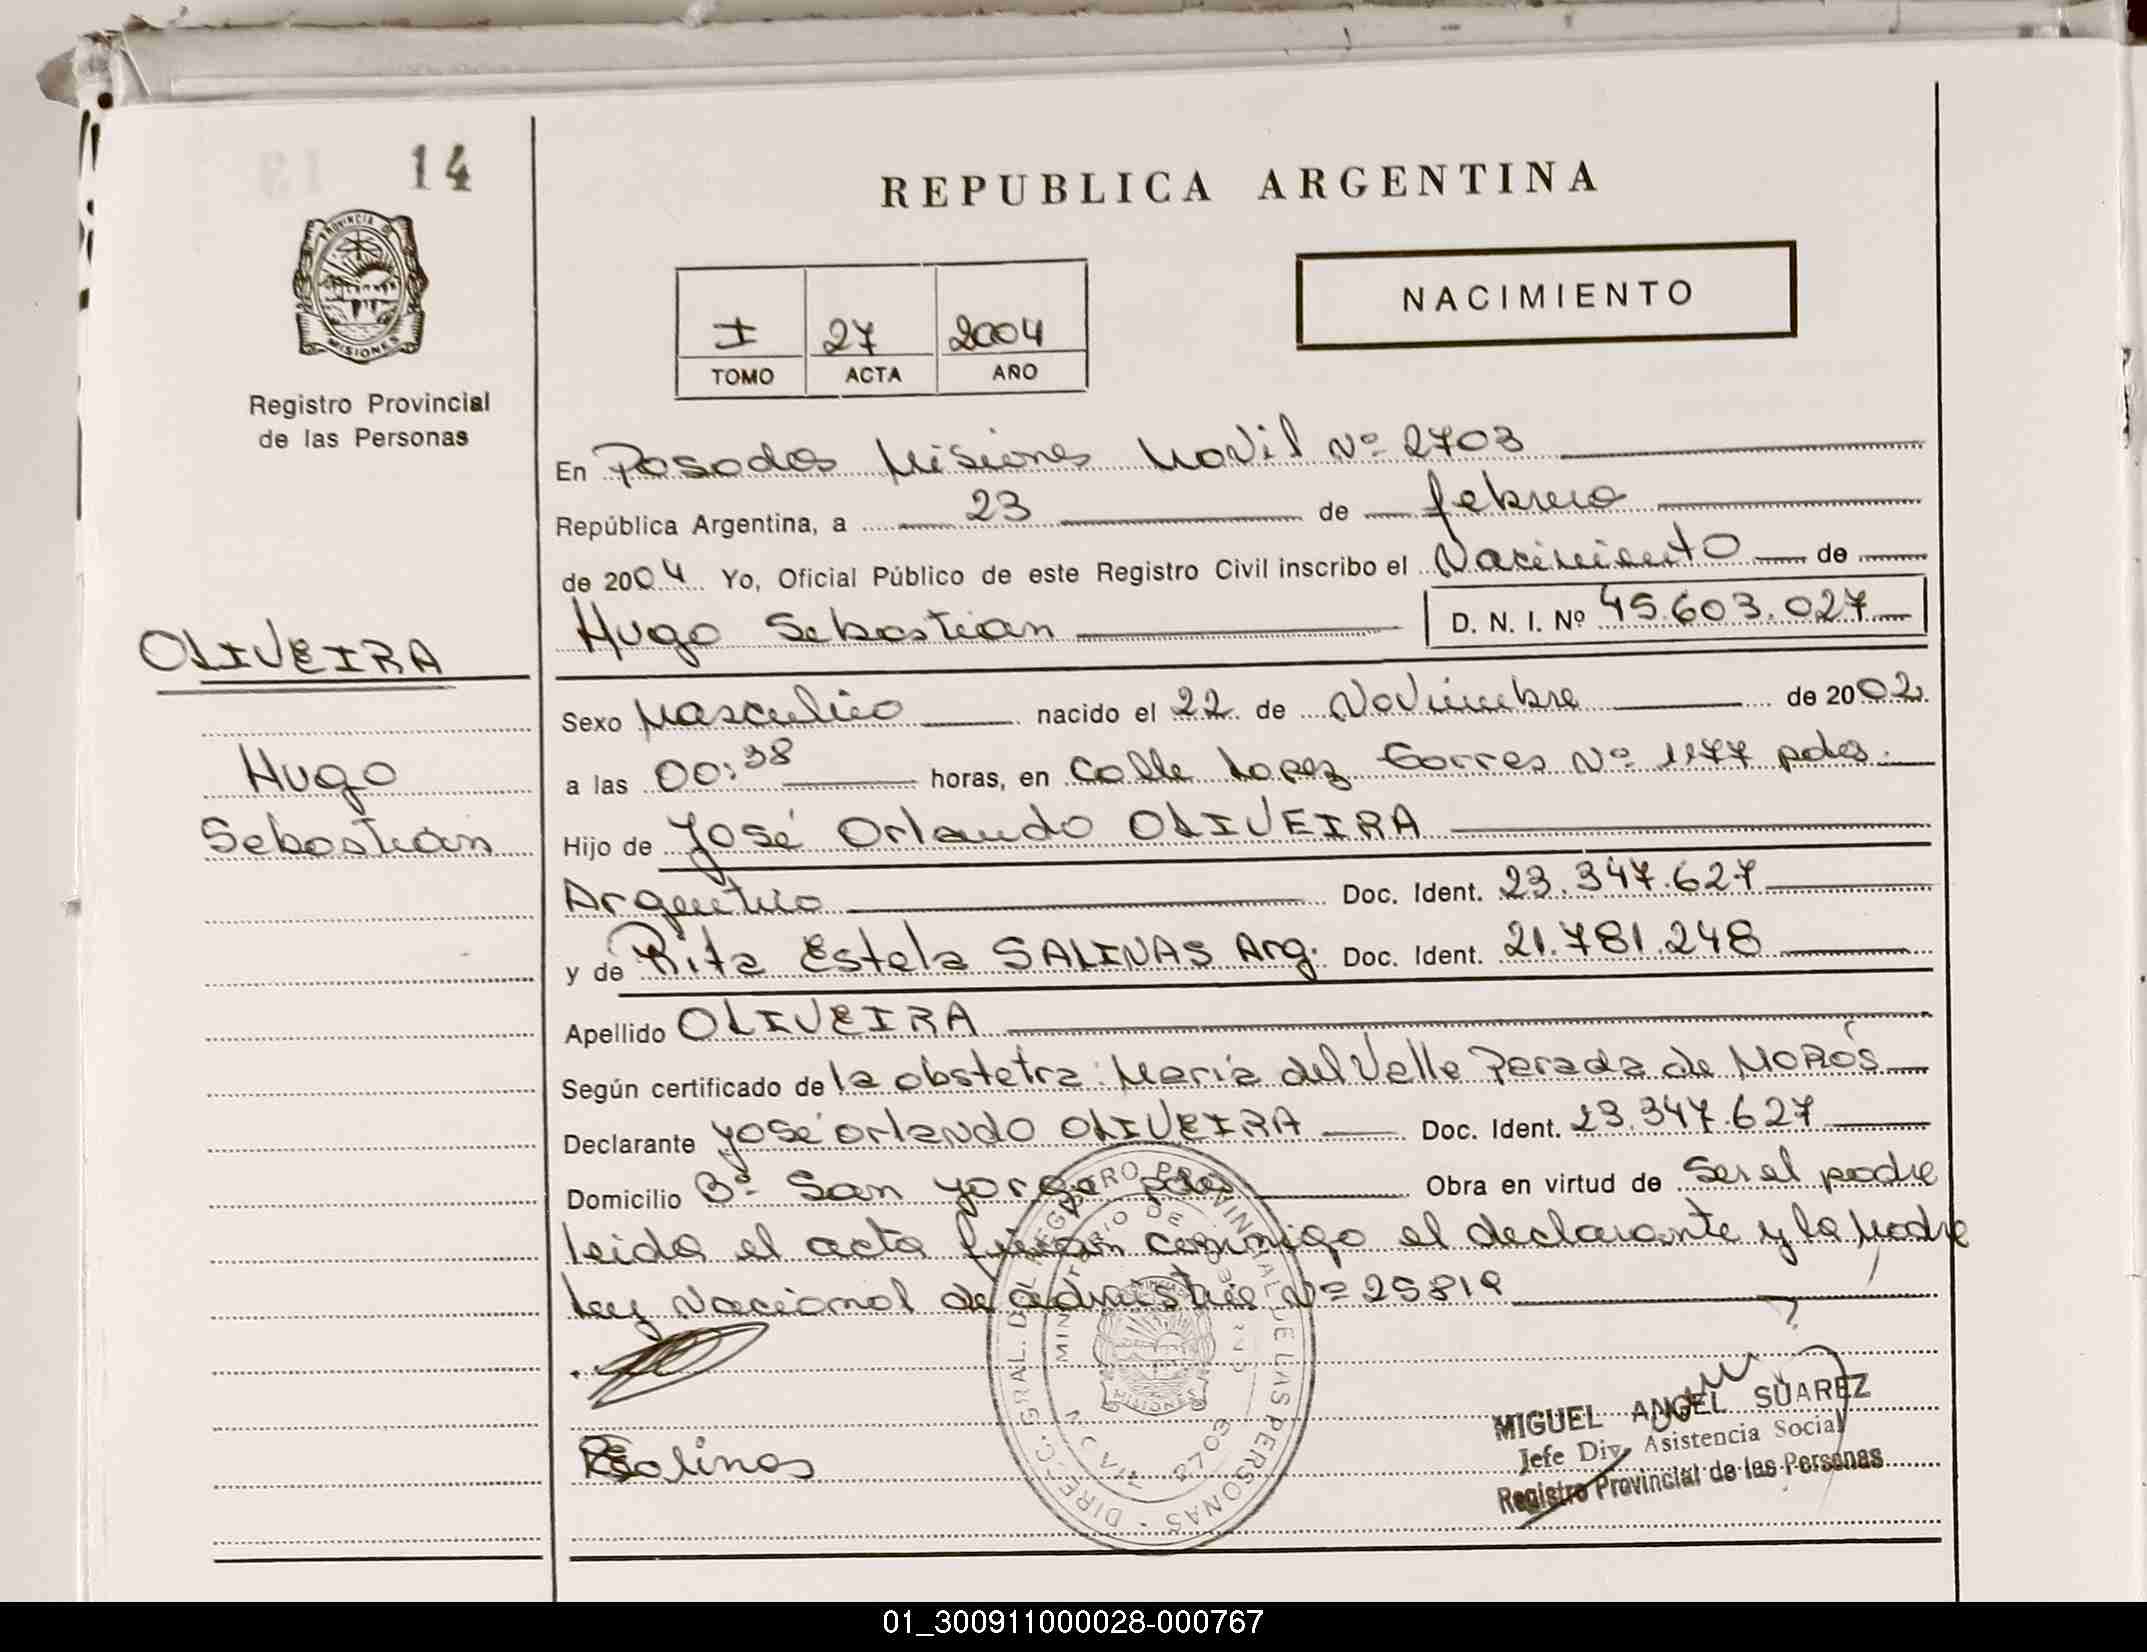 14
REPUBLICA ARGENTINA
PROVINCIA D
MISIONES
Registro Provincial
de las Personas
NACIMIENTO
I 27 2004
TOMO ACTA AÑO
En Posadas Misiones Movil Nº 2703
República Argentina, a 23 de febrero
de 2004 Yo, Oficial Público de este Registro Civil inscribo el Nacimiento de
Hugo Sebastian D. N. I. Nº 45.603.027
OLIVEIRA
Hugo
Sebastián
Sexo Masculino nacido el 22 de Noviembre de 2002
a las 00:38 horas, en Calle Lopez Torres Nº 1177 pdas.
Hijo de José Orlando OLIVEIRA
Argentino Doc. Ident. 23.347.627
y de Rita Estela SALINAS Arg. Doc. Ident. 21.781.248
Apellido OLIVEIRA
Según certificado de la obstetra: María del Valle Parada de MOROS
Declarante José Orlando OLIVEIRA Doc. Ident. 23.347.627
Domicilio Bº San Jorge pdas Obra en virtud de Ser el padre
leida el acta firman conmigo el declarante y la Madre
Ley Nacional de administrie Nº 25819
RESalinas
DIREC. GRAL. DEL REGISTRO PROVINCIAL DE LAS PERSONAS
MINISTERIO DE GOBIERNO
MISIONES
2703
MIGUEL ANGEL SUAREZ
Jefe Div. Asistencia Social
Registro Provincial de las Personas
01_300911000028-000767